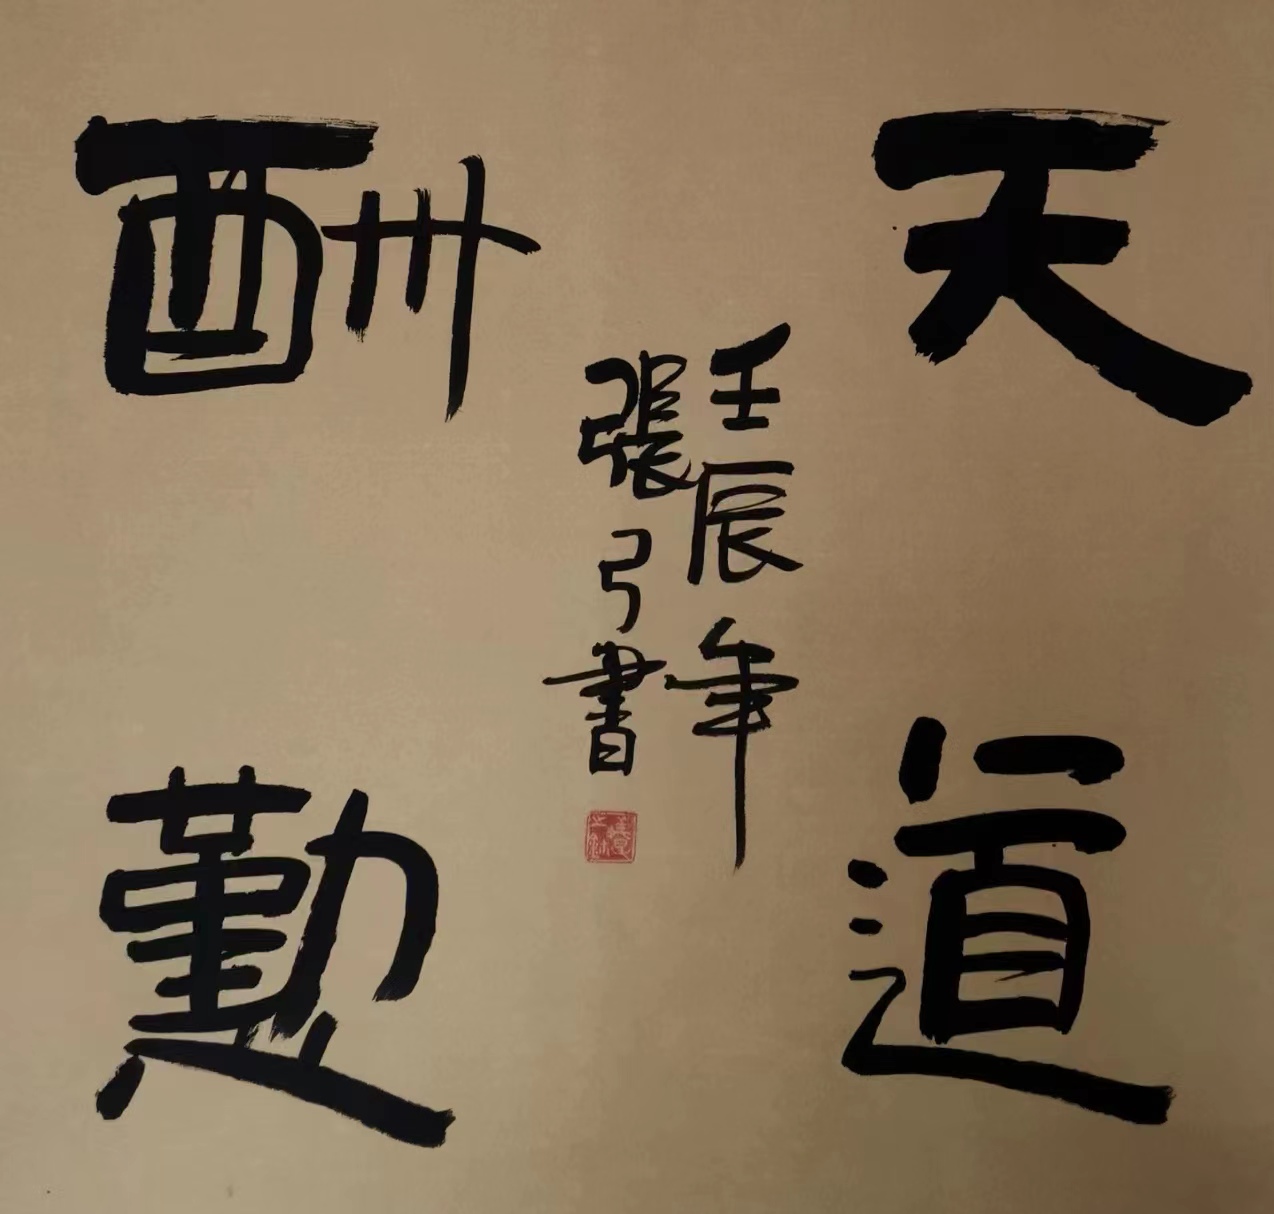 天道
酬懃
壬辰年
張弓書